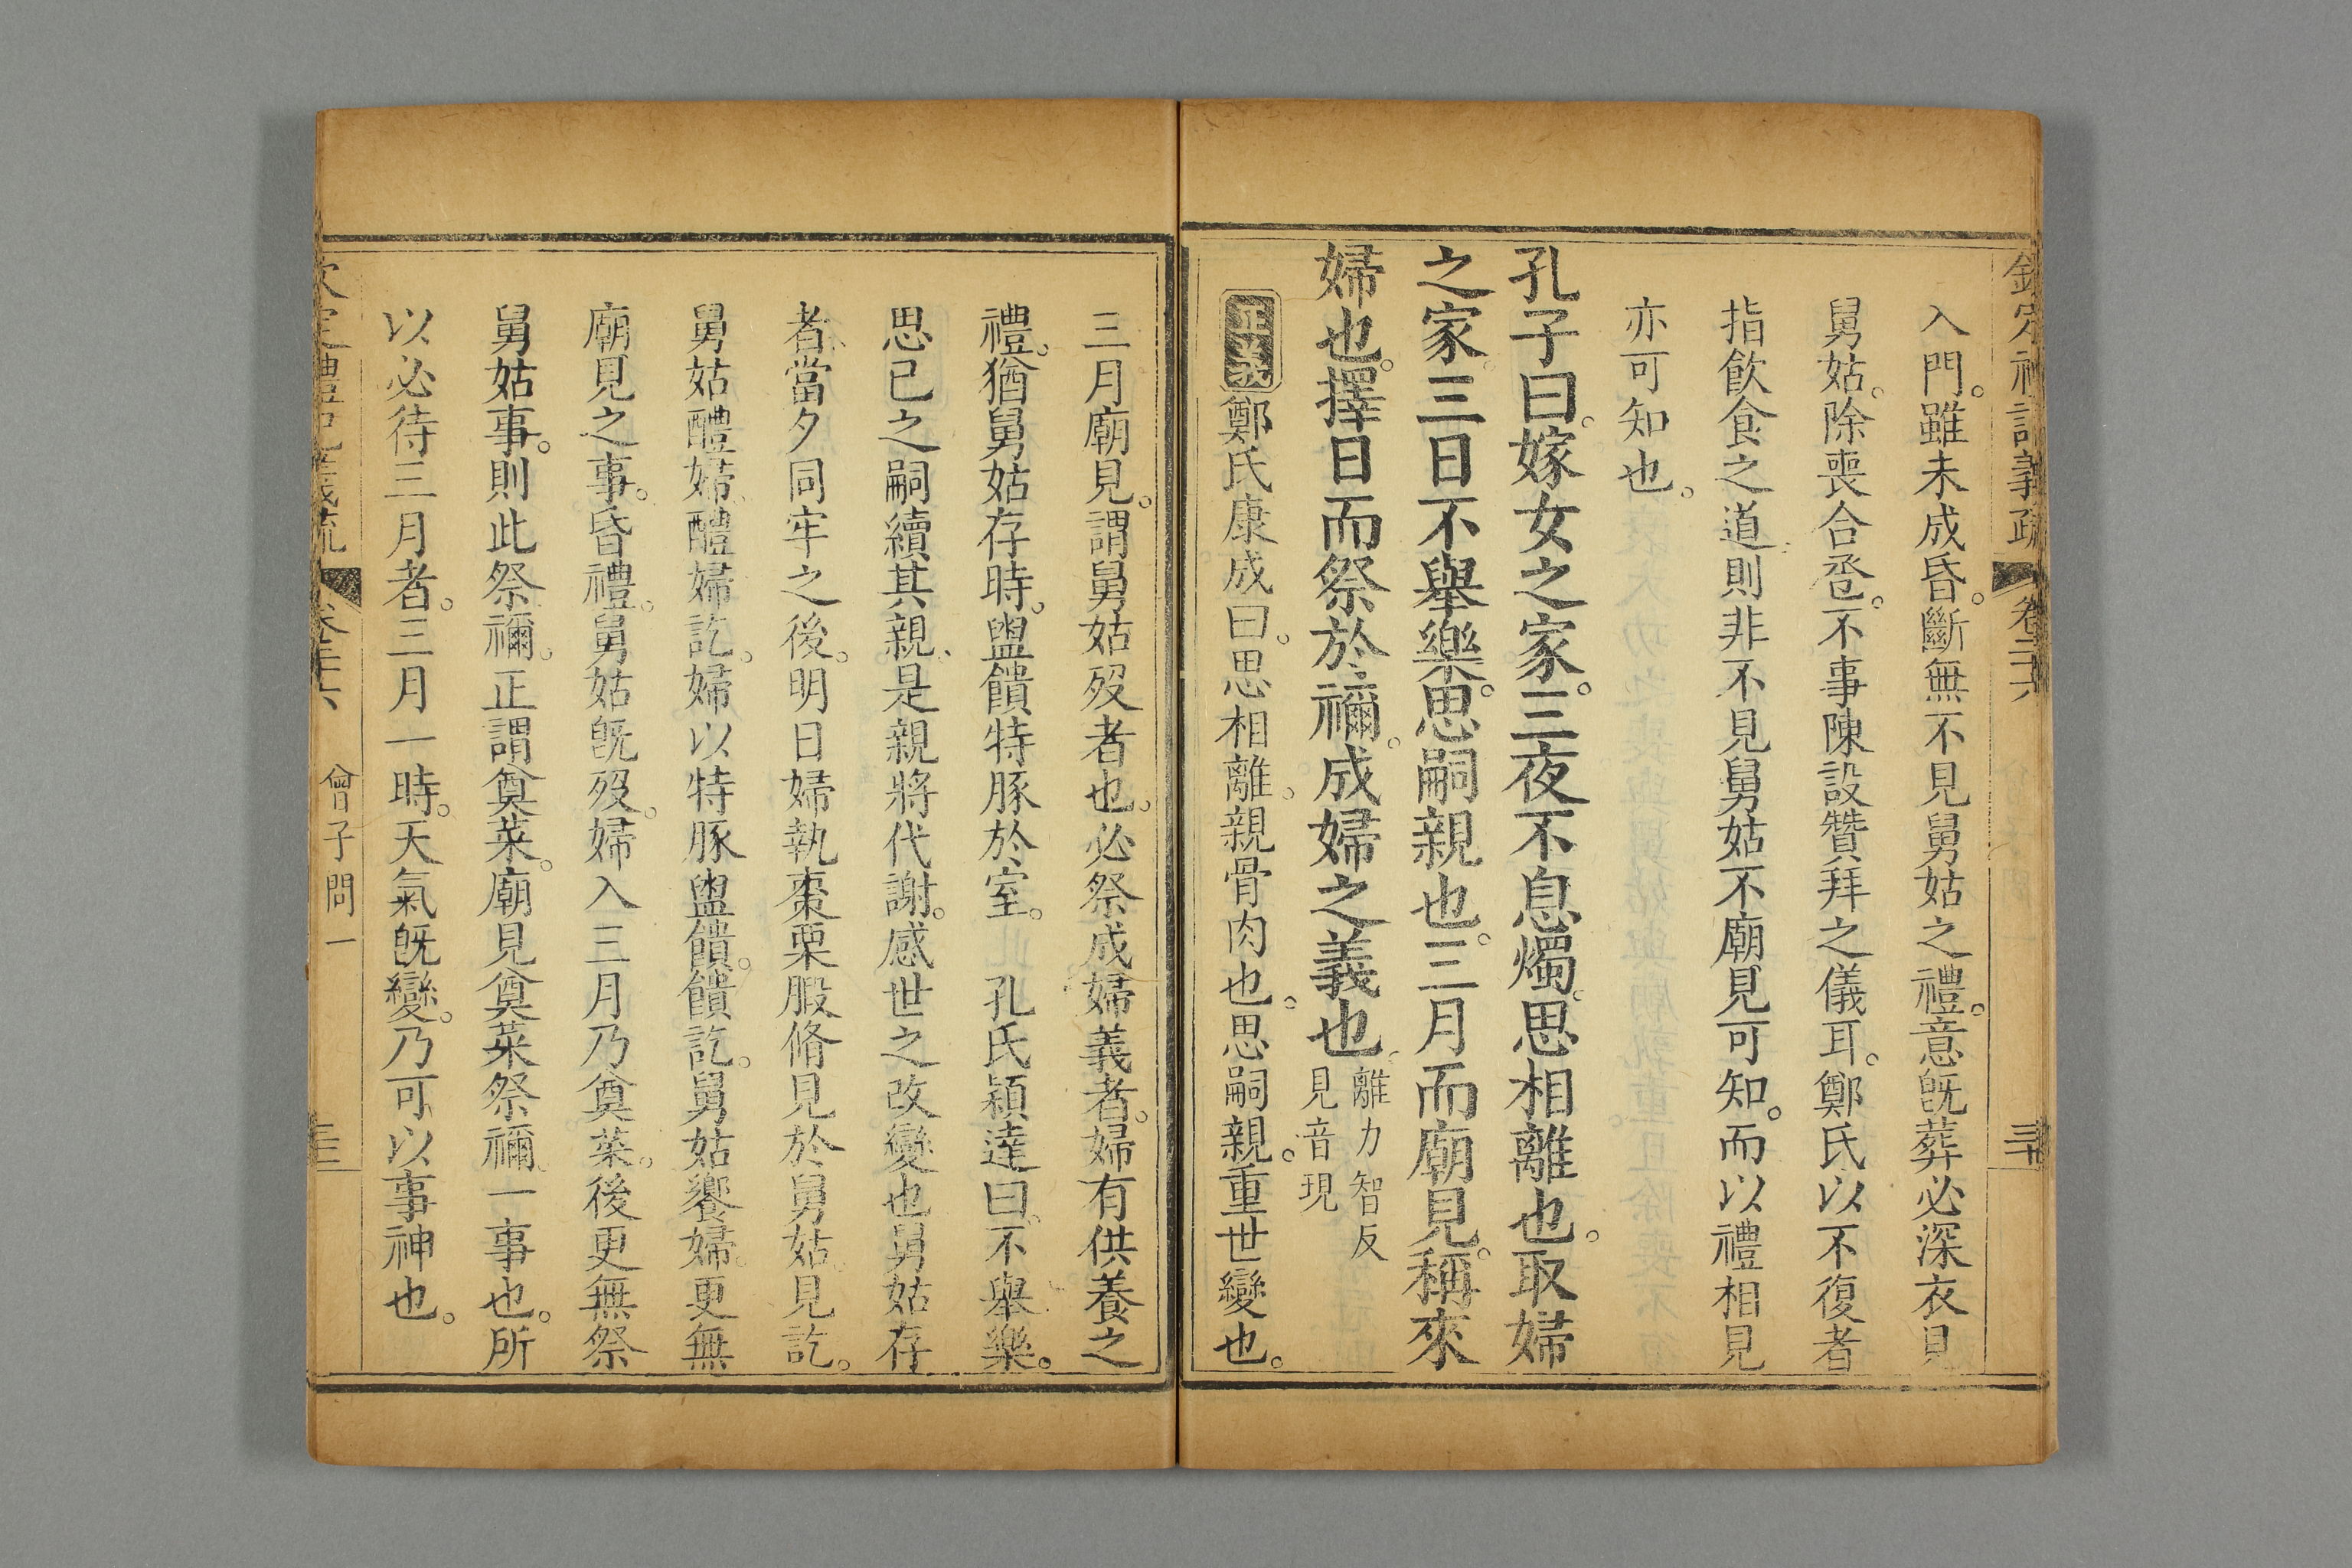 入門。雖未成昏。斷無不見舅姑之禮。意旣葬必深衣見
舅姑。除喪合巹。不事陳設贊拜之儀耳。鄭氏以不復者
指飲食之道則非不見舅姑不廟見可知。而以禮相見
亦可知也。
孔子曰。嫁女之家。三夜不息燭。思相離也。取婦
之家。三日不舉樂。思嗣親也。三月而廟見。稱來
婦也。擇日而祭於禰。成婦之義也
離力智反
見音現
正義 鄭氏康成曰。思相離。親骨肉也。思嗣親。重世變也。
三月廟見。謂舅姑歿者也。必祭成婦義者。婦有供養之
禮。猶舅姑存時。盥饋特豚於室。 孔氏穎達曰。不舉樂。
思已之嗣續其親、是親將代謝。感世之改變也舅姑存
者、當夕同牢之後。明日婦執棗栗腶脩見於舅姑。見訖。
舅姑醴婦、醴婦訖。婦以特豚盥饋。饋訖。舅姑饗婦。更無
廟見之事。昏禮。舅姑旣歿。婦入三月乃奠菜。後更無祭
舅姑事。則此祭禰。正謂奠菜。廟見奠菜祭禰一事也。所
以必待三月者。三月一時。天氣旣變。乃可以事神也。
曾子問一